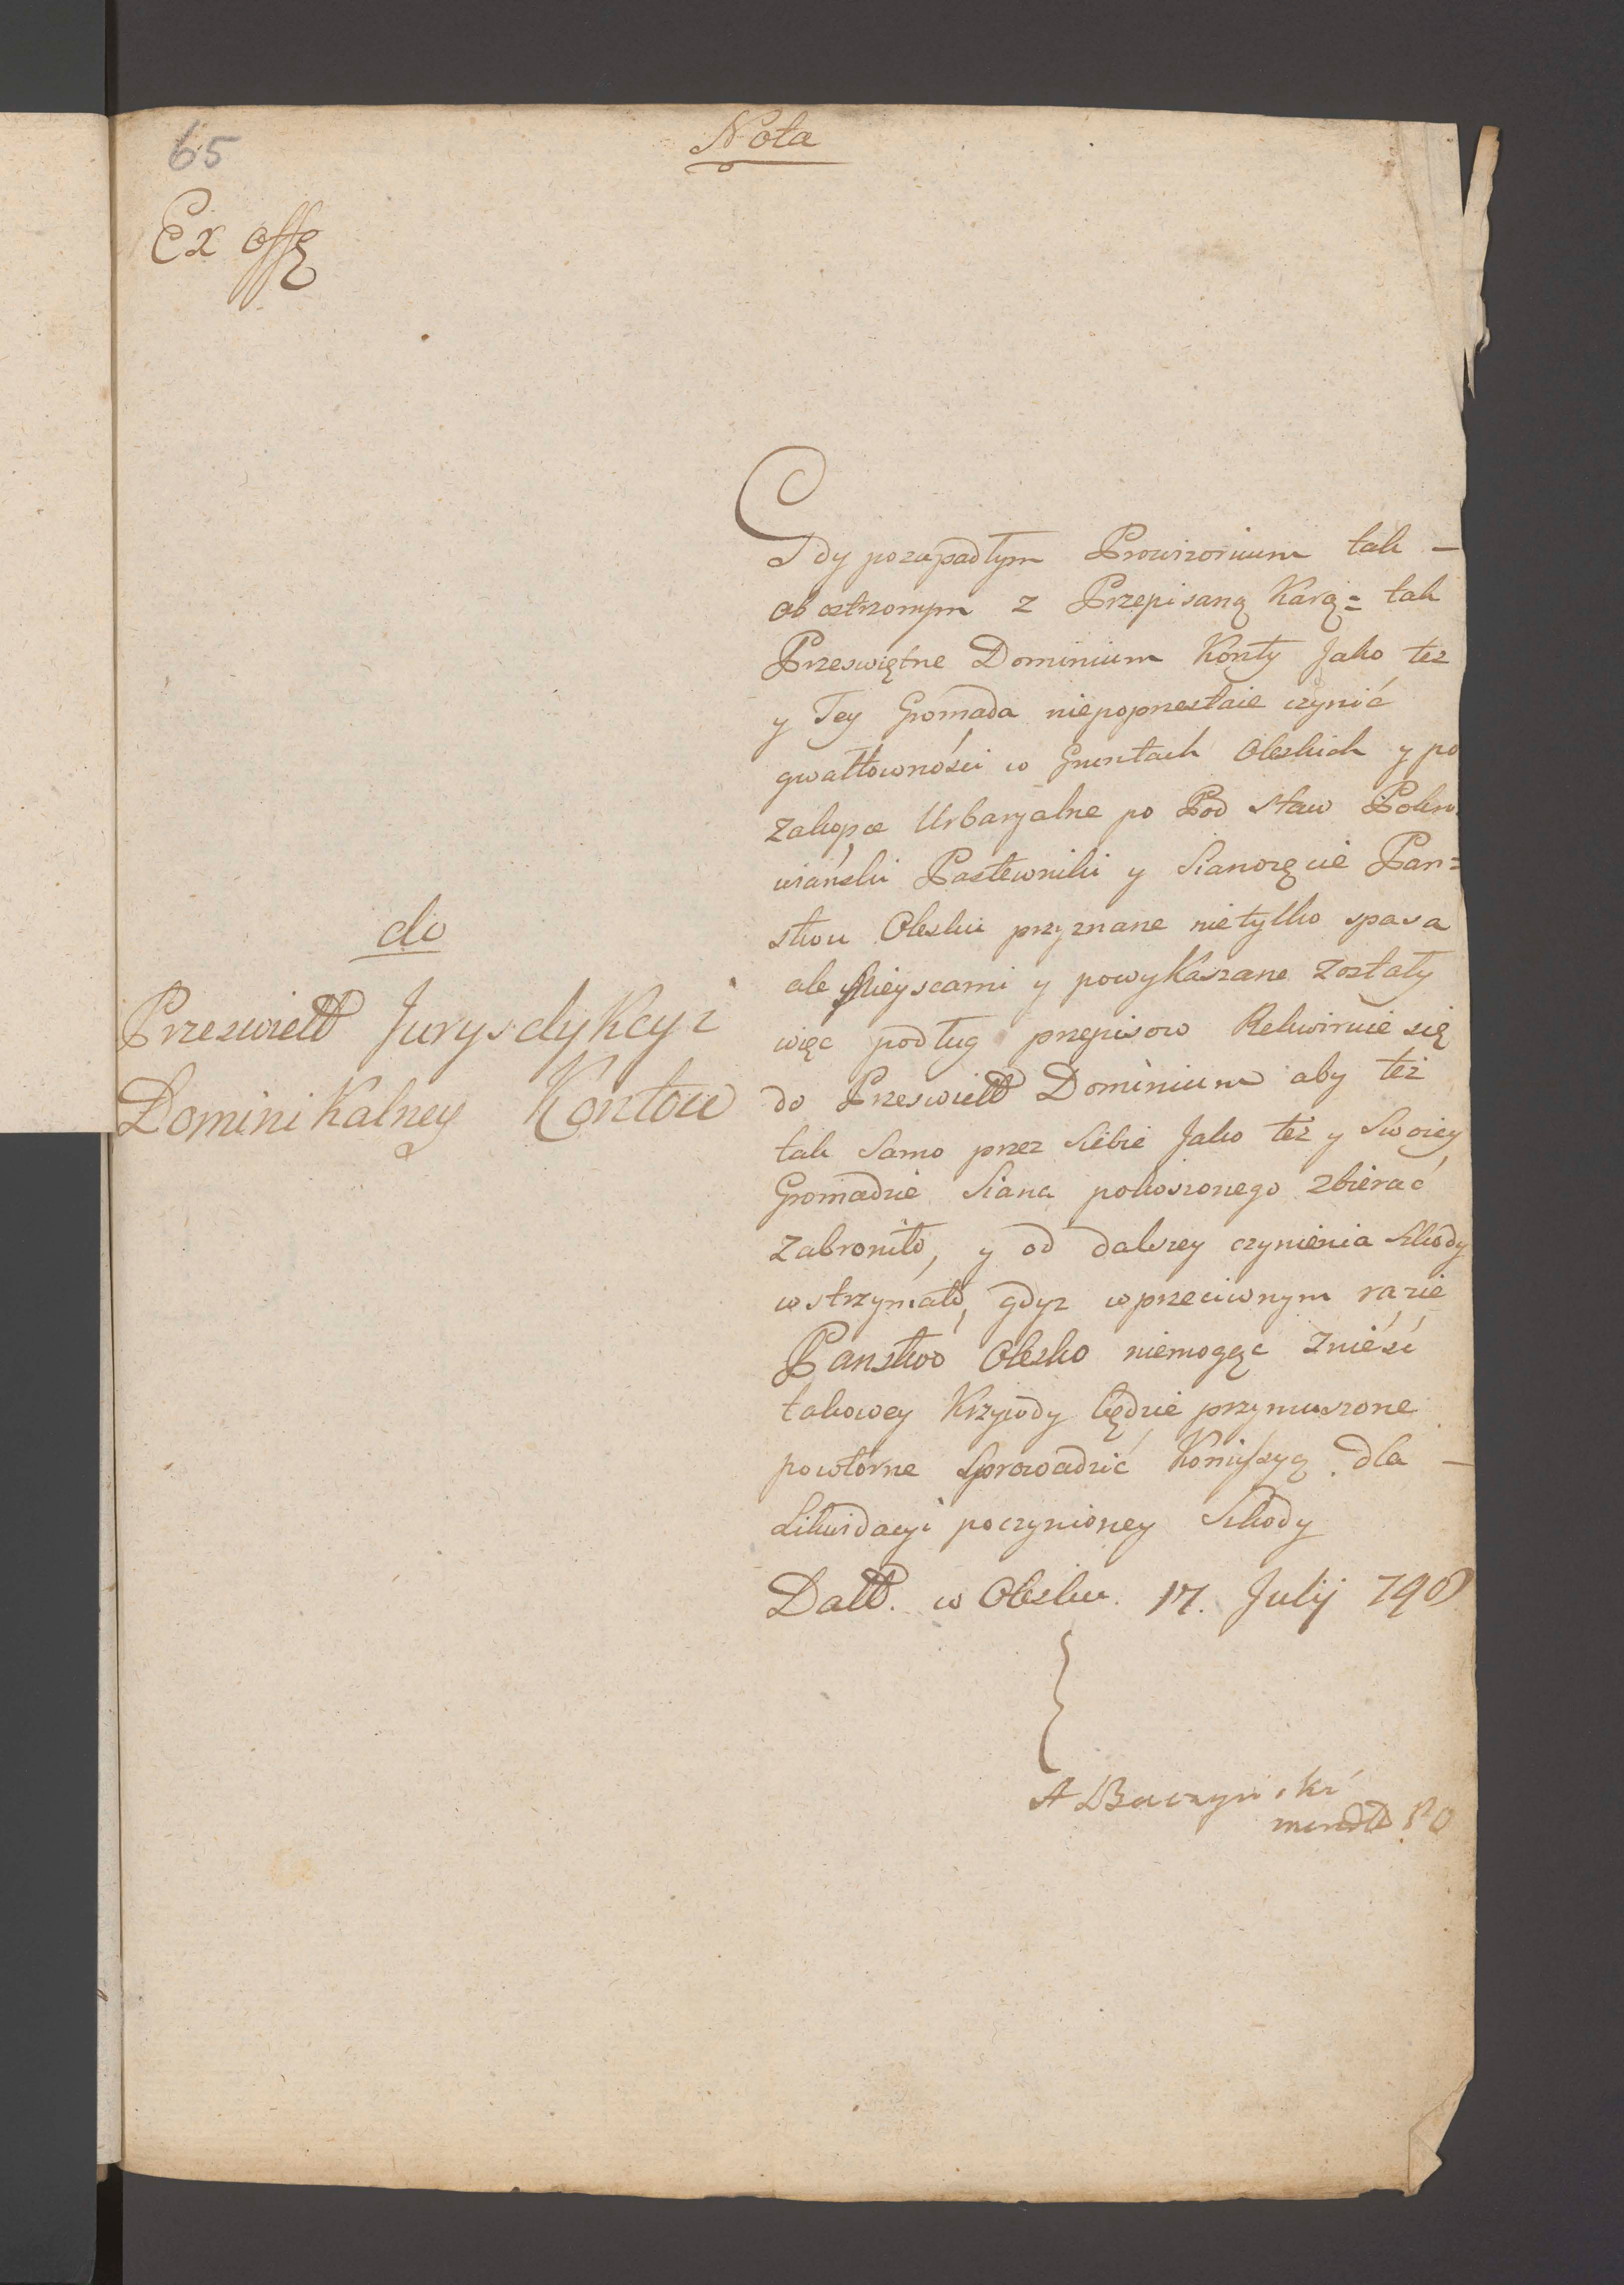 65
Nota
Ex offo
do
Przeswiettt Jurysdykcyi
Dominikalney Kontow
Gdy pozapadłym Prowizorium tak –
ob ostrzonym z Przepisaną Karą= tak
Przeswiętne Dominium Konty Jako tez
y Tey Gromada niepoprzestaie czynić
gwałtowności w Gruntach Oleskich y po
zakopce Urbaryalne po Pod staw
Pastewniki y Sianozęcie Pan=
stwu Olesku przyznane nietylko spasa
ale Mieyscami y powykaszane zostały
więc podług przepisow Rekwiruie się
do Przeswiettt Dominium aby też
tak Samo przez Siebie Jako też y Swoiey
Gromadzie Siana pokoszonego zbierać
zabroniło, y od dalszey czynienia Szkody
wstrzymało, gdyz wprzeciwnym razie
Panstwo Olesko niemogąc znieść
takowey Krzywdy będzie przymuszone
powtórne Sprowadzić Komissyą dla –
Likwidacyi poczynioney Szkody
Dattt. w Olesku 17. Julij 790
A Baczynski